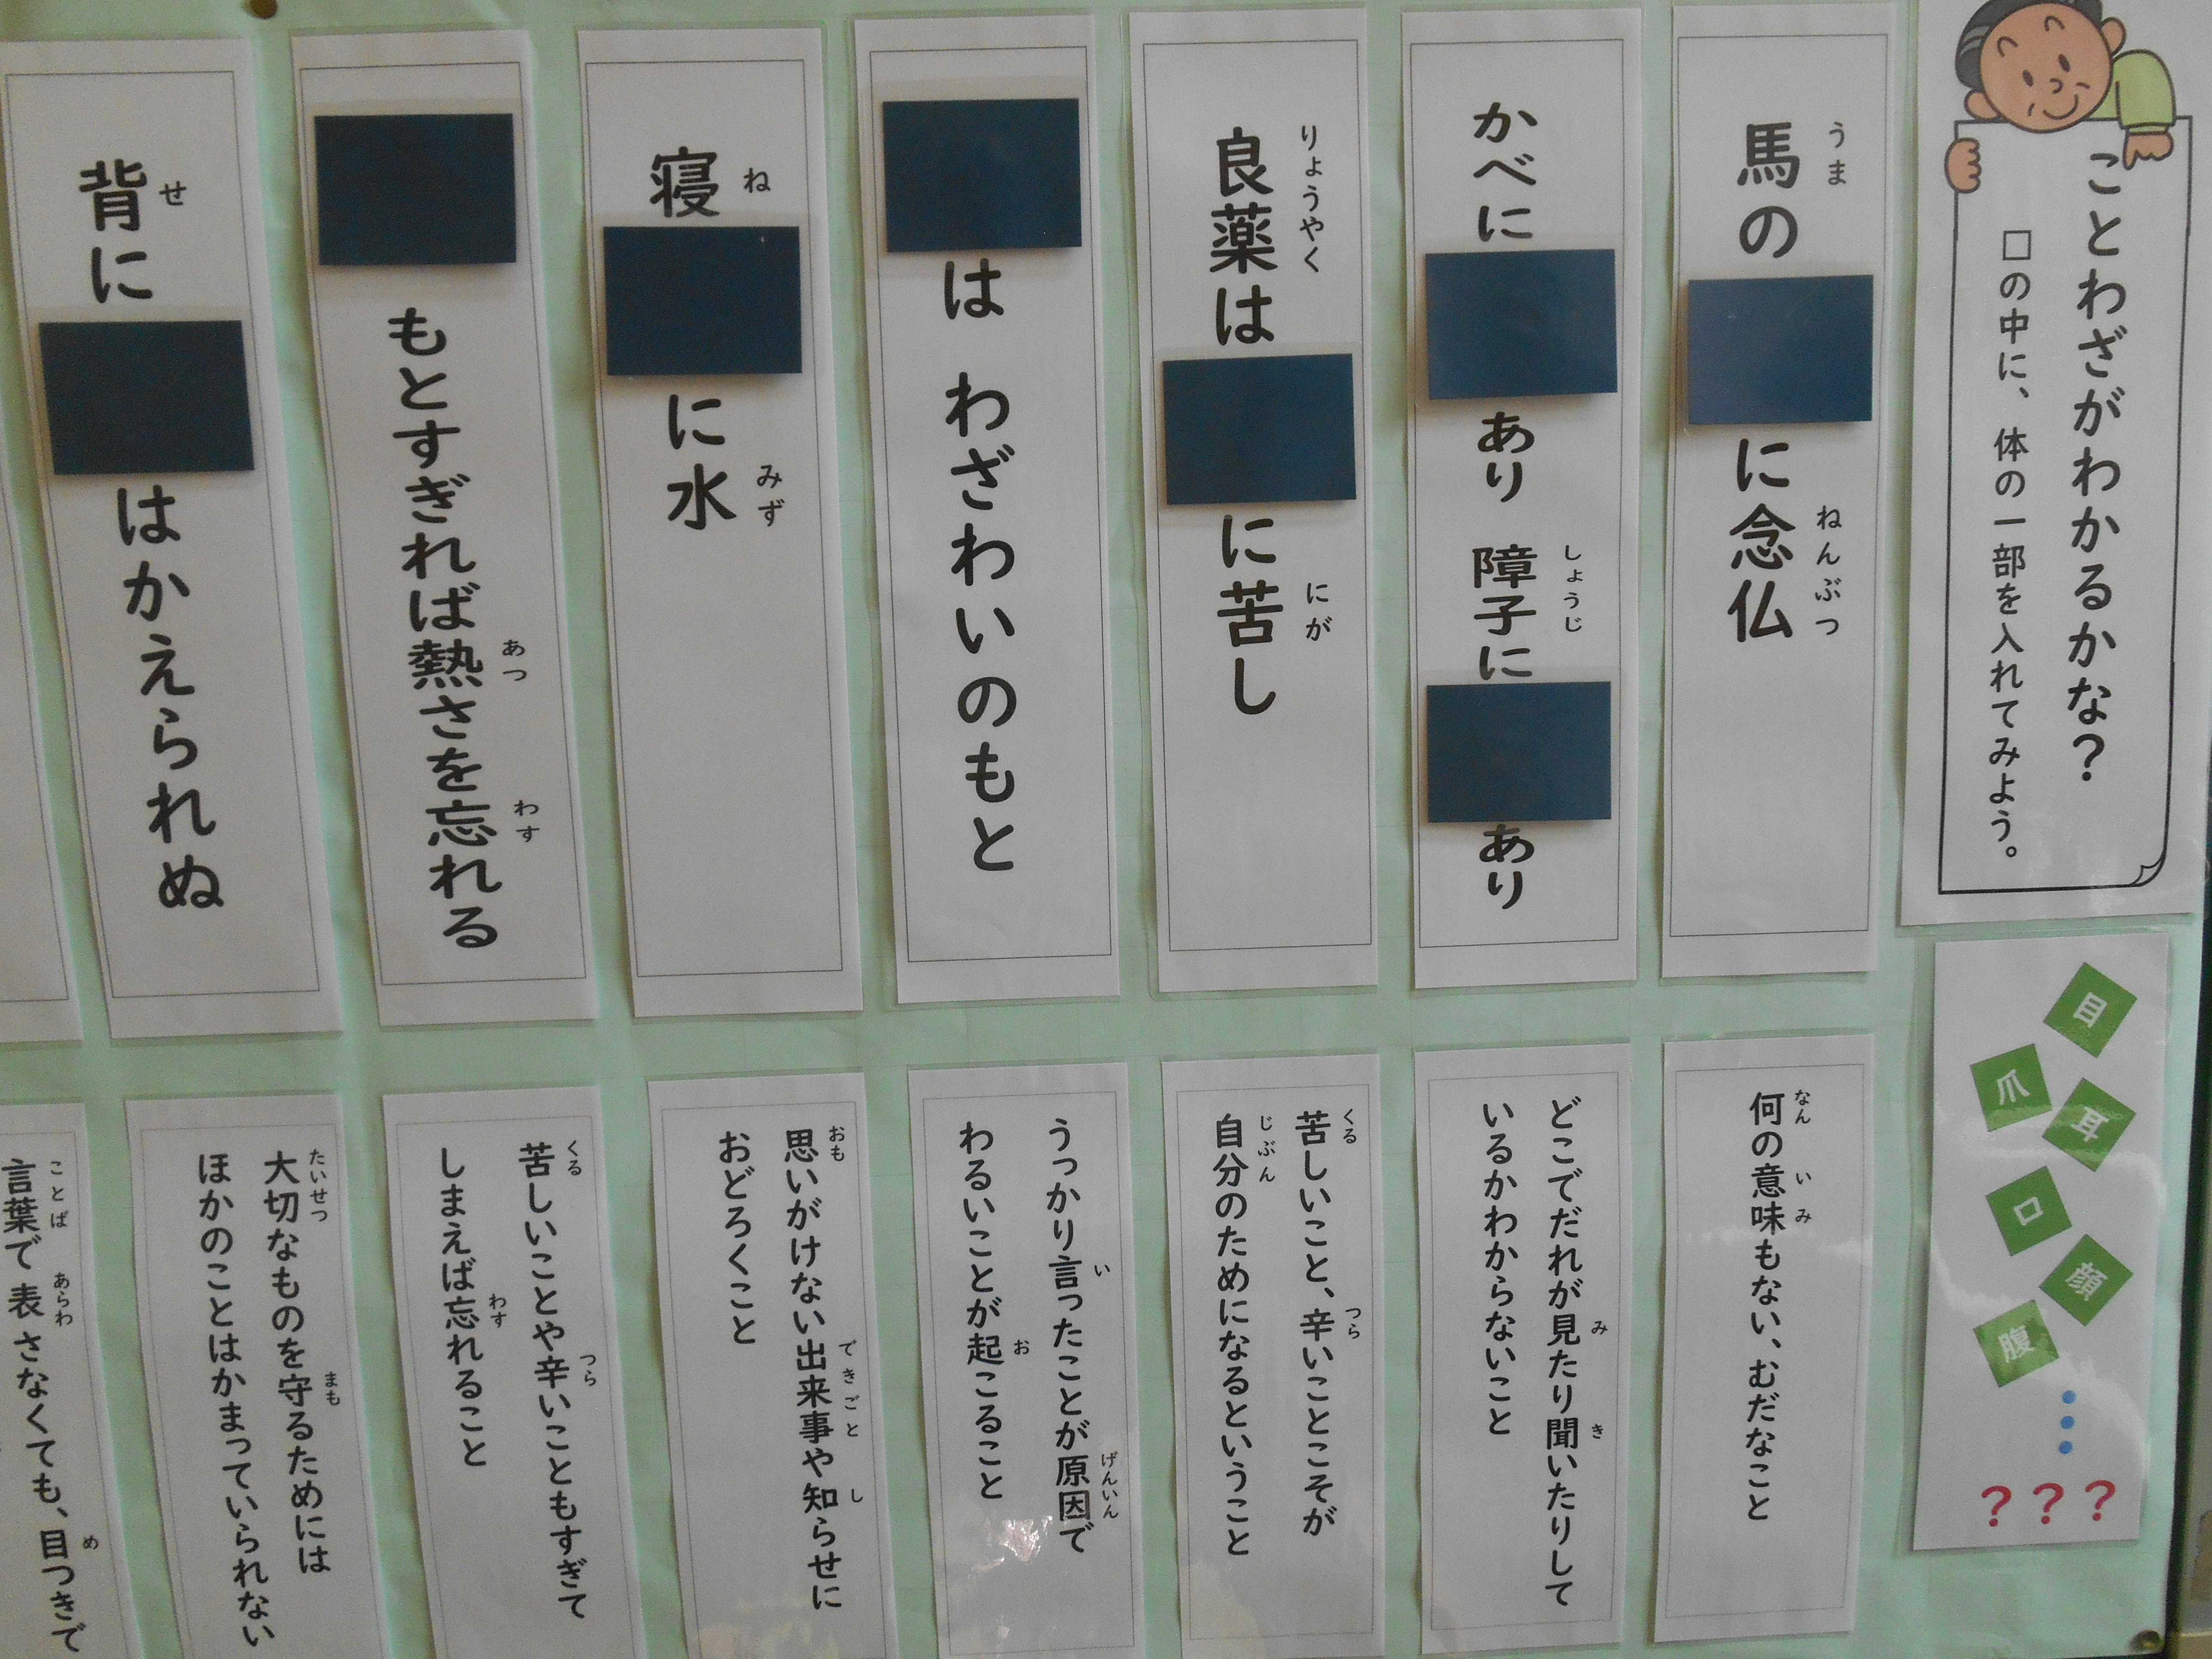 ことわざがわかるかな?
□の中に、体の一部を入れてみよう。
目
爪
耳
口
顔
腹
???
馬の に念仏
うま
ねんぶつ
かべに あり 障子に あり
しょうじ
良薬は に苦し
りょうやく
にが
は わざわいのもと
寝 に水
ね
みず
もとすぎれば熱さを忘れる
あつ
わす
背に はかえられぬ
せ
何の意味もない、むだなこと
なん
い
み
どこでだれが見たり聞いたりして
み
き
いるかわからないこと
苦しいこと、辛いことこそが
くる
つら
自分のためになるということ
じぶん
うっかり言ったことが原因で
い
げんいん
わるいことが起こること
お
思いがけない出来事や知らせに
おも
できごと
し
おどろくこと
苦しいことや辛いこともすぎて
くる
つら
しまえば忘れること
わす
大切なものを守るためには
たいせつ
まも
ほかのことはかまっていられない
言葉で表さなくても、目つきで
ことば
あらわ
め